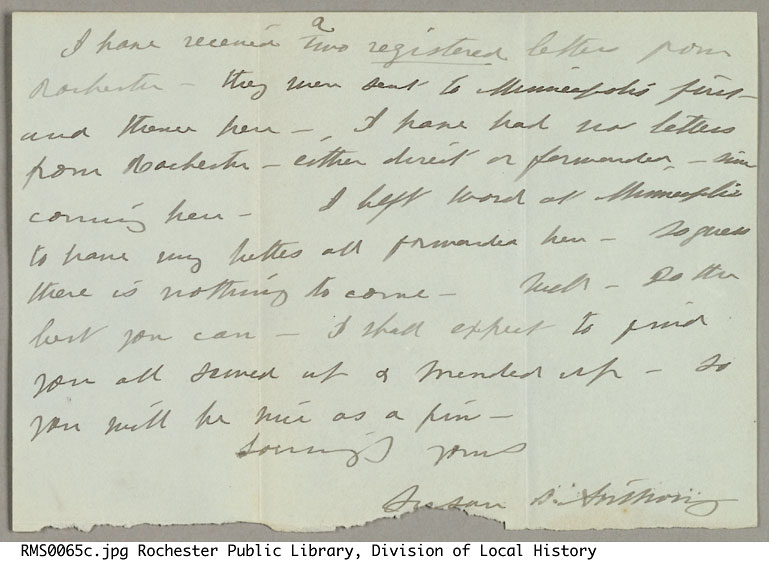 a
I have received two registered letters from
Rochester - they were sent to Minneapolis first -
and thence here - I have had no letters
from Rochester - either direct or forwarded - since
coming here - I left word at Minneapolis
to have my letters all forwarded here - so guess
there is nothing to come - Well - Do the
best you can - I shall expect to find
you all sewed up & mended up - so
you will be nice as a pin -
Lovingly yours
Susan B. Anthony
RMS0065c.jpg Rochester Public Library, Division of Local History